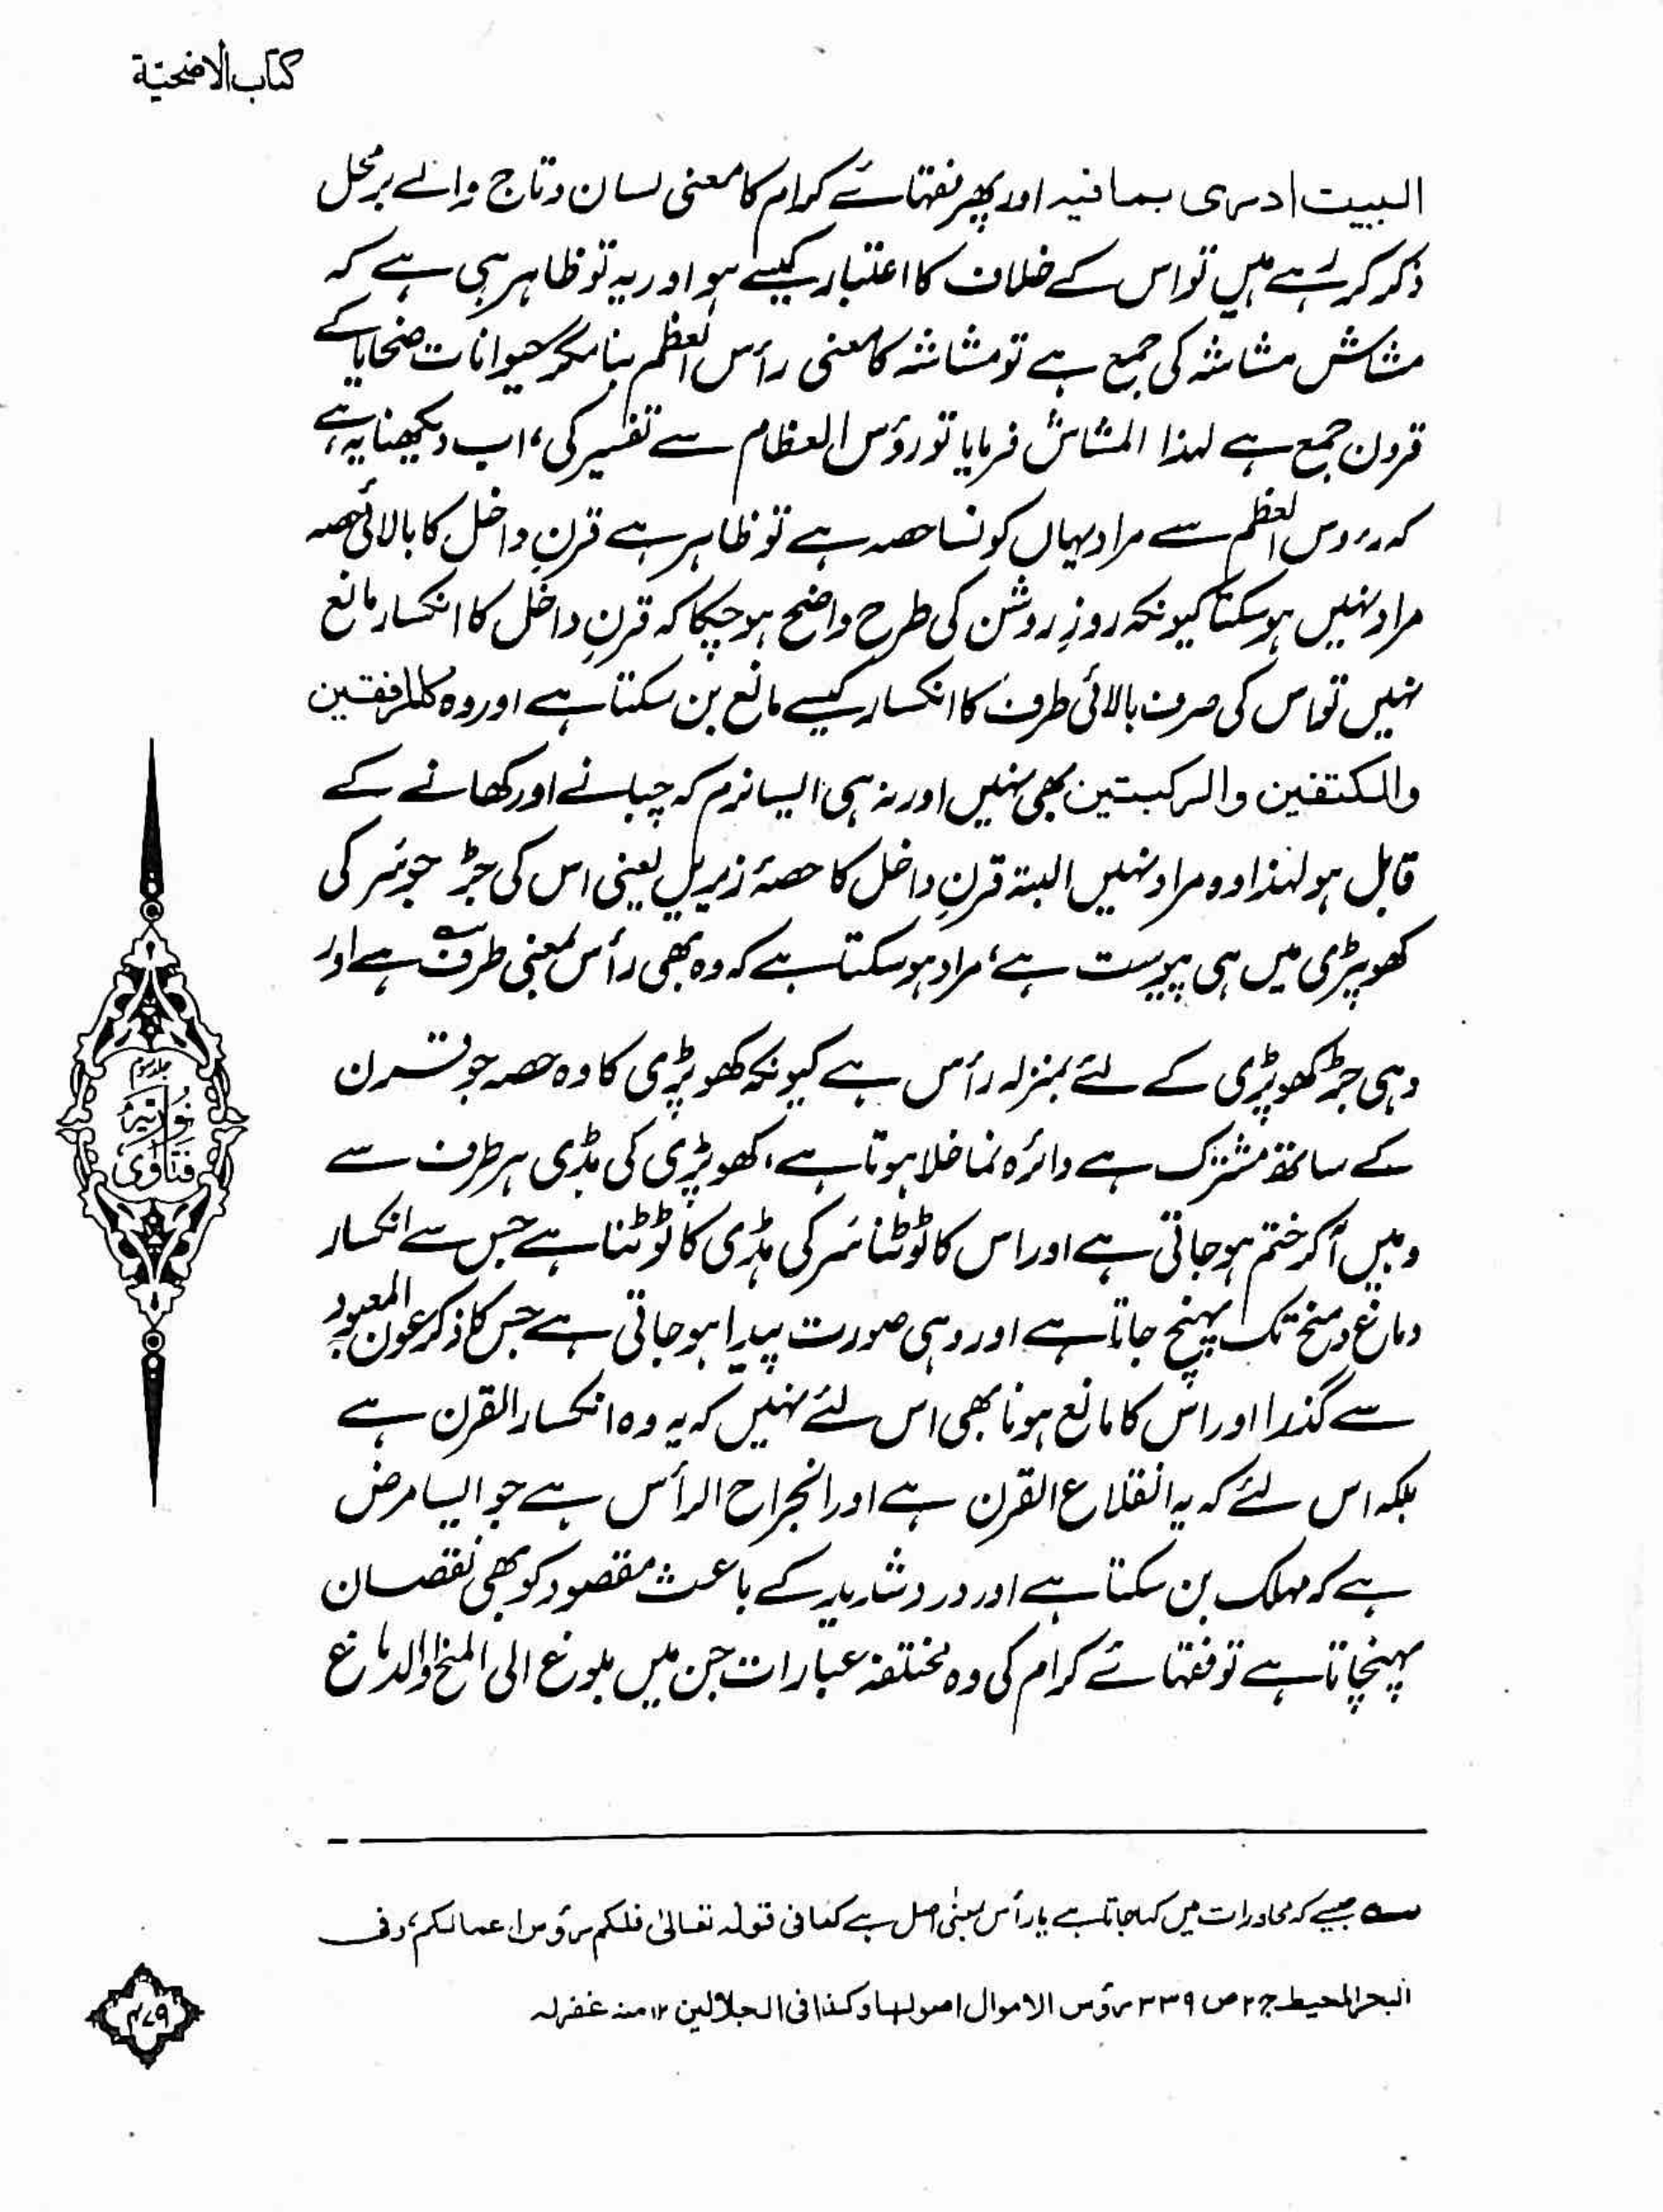 کتاب الاضحیّة
البیت ادری بما فیہ اور پھر فقہائے کرام کا معنی لسان و تاج والے برمحل
ذکر کر رہے ہیں تو اس کے خلاف کا اعتبار کیسے ہو اور یہ تو ظاہر ہی ہے کہ
مشاش مشاشہ کی جمع ہے تو مشاشہ کا معنی رأس العظم بنا مگر حیوانات ضحایا کے
قرون جمع ہے لہذا المشاش فرمایا تو رؤس العظام سے تفسیر کی، اب دیکھنا یہ ہے،
کہ رءوس العظم سے مراد یہاں کونسا حصہ ہے تو ظاہر ہے قرنِ داخل کا بالائی حصہ
مراد نہیں ہوسکتا کیونکہ روزِ روشن کی طرح واضح ہوچکا کہ قرنِ داخل کا انکسار مانع
نہیں تو اس کی صرف بالائی طرف کا انکسار کیسے مانع بن سکتا ہے اور وہ کالمرفقین
والکتفین والرکبتین بھی نہیں اور نہ ہی ایسا نرم کہ چبانے اور کھانے کے
قابل ہو لہٰذا وہ مراد نہیں البتہ قرنِ داخل کا حصۂ زیریں یعنی اس کی جڑ جو سَر کی
کھوپڑی میں ہی پیوست ہے، مراد ہوسکتا ہے کہ وہ بھی رأس بمعنی طرف ہے اور
وہی جڑ کھوپڑی کے لئے بمنزلہ رأس ہے کیونکہ کھوپڑی کا وہ حصہ جو قرن
کے ساتھ مشترک ہے دائرہ نما خلا ہوتا ہے، کھوپڑی کی ہڈی ہر طرف سے
وہیں آکر ختم ہوجاتی ہے اور اس کا ٹوٹنا سَر کی ہڈی کا ٹوٹنا ہے جس سے انکسار
دماغ و مخ تک پہنچ جاتا ہے اور وہی صورت پیدا ہوجاتی ہے جس کا ذکر عون المعبود
سے گذرا اور اس کا مانع ہونا بھی اس لئے نہیں کہ یہ وہ انکسار القرن ہے
بلکہ اس لئے کہ یہ انقلاع القرن ہے اور انجراح الرأس ہے جو ایسا مرض
ہے کہ مہلک بن سکتا ہے اور درد شدید کے باعث مقصود کو بھی نقصان
پہنچاتا ہے تو فقہائے کرام کی وہ مختلفہ عبارات جن میں بلوغ الی المخ والدماغ
جلد سوم
نوریہ
فتاویٰ
سے جیسے کہ محاورات میں کہا جاتا ہے یا رأس بمعنٰی اصل ہے کما فی قولہ تعالیٰ فلکم رؤس اعمالکم، وفی
البحر المحیط ج ۲ ص ۳۳۹ رؤس الاموال اصولہا وکذا فی الجلالین ۱۲ منہ غفرلہ
۴۷۹